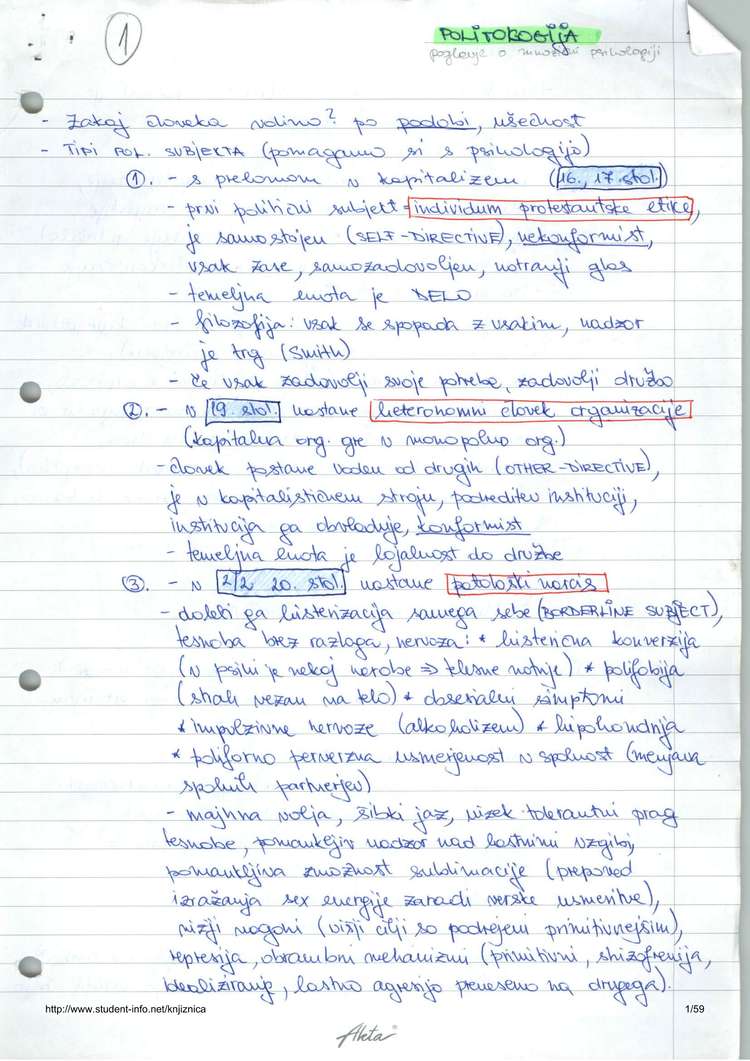 1
POLITOLOGIJA
poglavje o množični psihologiji
- Zakaj človeka volimo? po podobi, všečnost
- TIPI POL. SUBJEKTA (pomagamo si s psihologijo)
1. - s prelomom v kapitalizem (16., 17. stol.)
- prvi politični subjekt = individum protestantske etike,
je samostojen (SELF-DIRECTIVE), nekonformist,
vsak zase, samozadovoljen, notranji glas
- temeljna enota je DELO
- filozofija: vsak se spopada z vsakim, nadzor
je trg (Smith)
- če vsak zadovolji svoje potrebe, zadovolji družbo
2. - v 19. stol. nastane heteronomni človek organizacije
(kapitalna org. gre v monopolno org.)
- človek postane voden od drugih (OTHER-DIRECTIVE),
je v kapitalističnem stroju, podrejen instituciji,
institucija ga obvladuje, konformist
- temeljna enota je lojalnost do družbe
3. - v 2/2 20. stol. nastane patološki narcis
- določi ga histerizacija samega sebe (BORDERLINE SUBJECT),
tesnoba brez razloga, nervoza: * histerična konverzija
(v psihi je nekaj narobe => telesne motnje) * polifobija
(strah vezan na telo) * obsesialni simptomi
* impulzivne nervoze (alkoholizem) * hipohondrija
* poliforno perverzna usmerjenost v spolnost (menjava
spolnih partnerjev)
- majhna volja, šibki jaz, nizek tolerantni prag
tesnobe, pomankljiv nadzor nad lastnimi vzgibi,
pomankljiva zmožnost sublimacije (prepoved
izražanja sex energije zaradi verske usmeritve),
nižji nagoni (višji cilji so podrejeni primitivnejšim),
represija, obrambni mehanizmi (primitivni, shizofrenija,
idealiziranje, lastno agresijo prenesemo na drugega).
http://www.student-info.net/knjiznica
1/59
Aleta